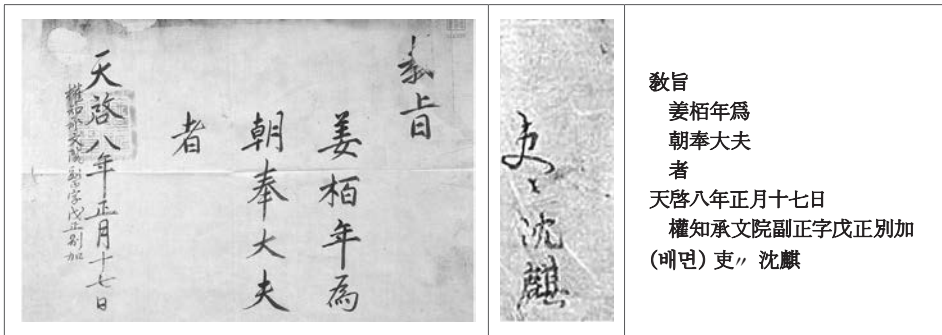 敎旨
姜栢年爲
朝奉大夫
者
天啓八年正月十七日
權知承文院副正字戊正別加
吏〃 沈麒
敎旨
姜栢年爲
朝奉大夫
者
天啓八年正月十七日
權知承文院副正字戊正別加
(배면) 吏〃 沈麒